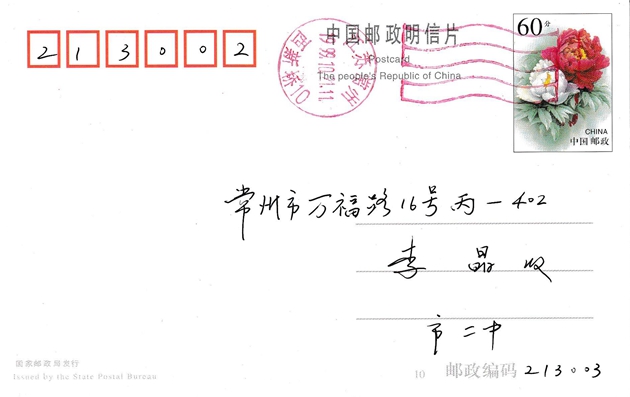 213002
中国邮政明信片
Postcard
The people's Republic of China
60分
CHINA
中国邮政
常州市万福路16号丙一402
李晶收
市二中
国家邮政局发行
Issued by the State Postal Bureau
10 邮政编码 213003